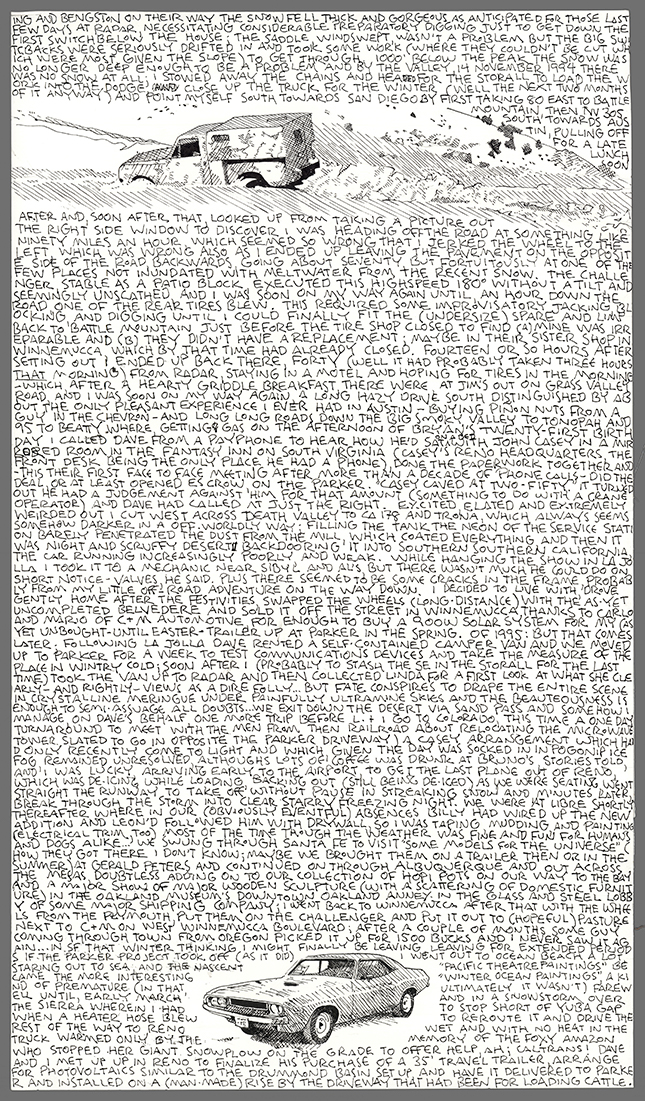 ING AND BENGSTON ON THEIR WAY. THE SNOW FELL THICK AND GORGEOUS AS ANTICIPATED FOR THOSE LAST
FEW DAYS AT RADAR, NECESSITATING CONSIDERABLE PREPARATORY DIGGING JUST TO GET DOWN THE
FIRST SWITCH BELOW THE HOUSE. THE SADDLE, WINDSWEPT WASN'T A PROBLEM, BUT THE BIG SWI
TCBACKS WERE SERIOUSLY DRIFTED IN AND TOOK SOME WORK (WHERE THEY COULDN'T BE CUT WH
ICH WERE MOST GIVEN THE SLOPE) TO GET THROUGH. 1000' BELOW THE PEAK THE SNOW WAS
NO LONGER DEEP ENOUGH TO BE A PROBLEM AND BY THE VALLEY 14 NOVEMBER 1994 THERE
WAS NO SNOW AT ALL; I STOWED AWAY THE CHAINS AND HEADED FOR THE STORALL TO LOAD THE W
ORK INTO THE DODGE CLOSE UP THE TRUCK FOR THE WINTER (WELL THE NEXT TWO MONTHS
OF IT ANYWAY) AND POINT MYSELF SOUTH TOWARDS SAN DIEGO BY FIRST TAKING 80 EAST TO BATTLE
MOUNTAIN, THEN NV 305
SOUTH TOWARDS AUS
TIN, PULLING OFF
FOR A LATE
LUNCH
SOON
AFTER AND, SOON AFTER, THAT, LOOKED UP FROM TAKING A PICTURE OUT
THE RIGHT SIDE WINDOW TO DISCOVER I WAS HEADING OFF THE ROAD AT SOMETHING LIKE
NINETY MILES AN HOUR, WHICH SEEMED SO WRONG THAT I JERKED THE WHEEL TO THE
LEFT WHICH WAS WRONG ALSO AS I ENDED UP LEAVING THE PAVEMENT ON THE OPPOSIT
E SIDE OF THE ROAD BACKWARDS GOING ABOUT SEVENTY, BUT FORTUITOUSLY AT ONE OF THE
FEW PLACES NOT INUNDATED WITH MELTWATER FROM THE RECENT SNOW. THE CHALLE
NGER, STABLE AS A PATIO BLOCK, EXECUTED THIS HIGHSPEED 180° WITHOUT A TILT AND
SEEMINGLY UNSCATHED AND I WAS SOON ON MY WAY AGAIN UNTIL, AN HOUR DOWN THE
ROAD ONE OF THE REAR TIRES BLEW. THIS REQUIRED SOME IMPROVISATORY JACKING, BL
OCKING, AND DIGGING UNTIL I COULD FINALLY FIT THE (UNDERSIZE) SPARE AND LIMP
BACK TO BATTLE MOUNTAIN JUST BEFORE THE TIRE SHOP CLOSED TO FIND (A) MINE WAS IRR
EPARABLE AND (B) THEY DIDN'T HAVE A REPLACEMENT; MAYBE IN THEIR SISTER SHOP IN
WINNEMUCCA, WHICH BY THAT TIME HAD ALREADY CLOSED. FOURTEEN OR SO HOURS AFTER
SETTING OUT I ENDED UP BACK THERE, FORTY (WELL IT HAD PROBABLY TAKEN THREE HOURS
THAT MORNING) FROM RADAR, STAYING IN A MOTEL AND HOPING FOR TIRES IN THE MORNING
-WHICH AFTER A HEARTY GRIDDLE BREAKFAST THERE WERE AT JIM'S OUT ON GRASS VALLEY
ROAD, AND I WAS SOON ON MY WAY AGAIN. A LONG HAZY DRIVE SOUTH DISTINGUISHED BY AB
OUT THE ONLY PLEASANT EXPERIENCE I EVER HAD IN AUSTIN - BUYING PIÑON NUTS FROM A
GUY IN THE CHEVRON - AND LONG LONG ROADS DOWN THE BIG SMOKY VALLEY TO TONOPAH AND
95 TO BEATY WHERE, GETTING GAS ON THE AFTERNOON OF BRYAN'S TWENTY-FIRST BIRTH
DAY I CALLED DAVE FROM A PAYPHONE TO HEAR HOW HE'D SAT WITH JOHN CASEY IN A MIR
RORED ROOM IN THE FANTASY INN ON SOUTH VIRGINIA (CASEY'S RENO HEADQUARTERS, THE
FRONT DESK BEING THE ONLY PLACE HE HAD A PHONE) DONE THE PAPERWORK TOGETHER AND
-THIS THEIR FIRST FACE TO FACE MEETING AFTER MORE THAN A DECADE OF PHONE CALLS - DID THE
DEAL, OR AT LEAST OPENED ESCROW, ON THE PARKER. CASEY CAVED AT TWO-FIFTY; IT TURNED
OUT HE HAD A JUDGEMENT AGAINST HIM FOR THAT AMOUNT (SOMETHING TO DO WITH A CRANE
OPERATOR) AND DAVE HAD CALLED AT JUST THE RIGHT. EXCITED ELATED AND EXTREMELY
WEIRDED OUT I CUT WEST ACROSS DEATH VALLEY TO CA 178 AND TRONA, WHICH ALWAYS SEEMS
SOMEHOW DARKER IN A OFF-WORLDLY WAY; FILLING THE TANK THE NEON OF THE SERVICE STATI
ON BARELY PENETRATED THE DUST FROM THE MILL, WHICH COATED EVERYTHING AND THEN IT
WAS NIGHT AND SCRUFFY DESERT BACKDOORING IT INTO SOUTHERN SOUTHERN CALIFORNIA,
THE CAR RUNNING INCREASINGLY POORLY AND WEAK. WHILE HANGING THE SHOW IN LA JO
LLA I TOOK IT TO A MECHANIC NEAR SIBYL AND AL'S, BUT THERE WASN'T MUCH HE COULD DO ON
SHORT NOTICE - VALVES, HE SAID. PLUS THERE SEEMED TO BE SOME CRACKS IN THE FRAME PROBAB
LY FROM MY LITTLE OFF-ROAD ADVENTURE ON THE WAY DOWN. I DECIDED TO LIVE WITH, DROVE
GENTLY HOME AFTER THE FESTIVITIES SWAPPED THE WHEELS (LONG-DISTANCE) WITH THE AS-YET
UNCOMPLETED BELVEDERE AND SOLD IT OFF THE STREET IN WINNEMUCCA, THANKS
AND MARIO OF C+M AUTOMOTIVE FOR ENOUGH TO BUY A 900W SOLAR SYSTEM FOR MY (AS
YET UNBOUGHT-UNTIL-EASTER-TRAILER UP AT PARKER IN THE SPRING OF 1995; BUT THAT COMES
LATER. FOLLOWING LA JOLLA DAVE RENTED A SELF-CONTAINED CAMPER VAN AND WE MOVED
UP TO PARKER FOR A WEEK TO TEST COMMUNICATIONS DEVICES AND TAKE THE MEASURE OF THE
PLACE IN WINTRY COLD; SOON AFTER I (PROBABLY TO STASH THE SE IN THE STORALL FOR THE LAST
TIME) TOOK THE VAN UP TO RADAR AND THEN COLLECTED LINDA FOR A FIRST LOOK AT WHAT SHE CLE
ARLY - AND RIGHTLY - VIEWS AS A DIRE FOLLY... BUT FATE CONSPIRES TO DRAPE THE ENTIRE SCENE
IN CRYSTALLINE MERINGUE UNDER PAINFULLY ULTRAMARINE SKIES AND THE BEAUTEOUSNESS IS
ENOUGH TO SEMI-ASSUAGE ALL DOUBTS... WE EXIT DOWN THE DESERT VIA SAND PASS AND SOMEHOW
MANAGE, ON DAVE'S BEHALF ONE MORE TRIP BEFORE L. + I GO TO COLORADO, THIS TIME A ONE DAY
TURNAROUND TO MEET WITH THE MEN FROM THEN RAILROAD ABOUT RELOCATING THE MICROWAVE
TOWER SLATED TO GO IN OPPOSITE THE PARKER DRIVEWAY) A CASEY ARRANGEMENT WHICH HA
D ONLY RECENTLY COME TO LIGHT AND WHICH GIVEN THE DAY WAS SOCKED IN IN POGONIP ICE
FOG REMAINED UNRESOLVED, ALTHOUGH LOTS OF COFFEE WAS DRUNK AT BRUNO'S STORIES TOLD,
AND I WAS LUCKY, ARRIVING EARLY TO THE AIRPORT, TO GET THE LAST PLANE OUT OF RENO,
WHICH WAS DEICING WHILE LOADING, BACKING OUT (STILL BEING DEICED) AS WE WERE SEATING, WENT
STRAIGHT THE RUNWAY TO TAKE OFF WITHOUT PAUSE IN STREAKING SNOW AND MINUTES LATER
BREAK THROUGH THE STORM INTO CLEAR STARRY FREEZING NIGHT. WE WERE AT LIBRE SHORTLY
THEREAFTER WHERE IN OUR (OBVIOUSLY EVENTFUL) ABSENCES BILLY HAD WIRED UP THE NEW
ADDITION AND LEON'D FOLLOWED HIM WITH DRYWALL, SO I WAS TAPING, MUDDING AND PAINTING
(ELECTRICAL TRIM, TOO) MOST OF THE TIME THOUGH THE WEATHER WAS FINE AND FUN FOR HUMANS
AND DOGS ALIKE... WE SWUNG THROUGH SANTA FE TO VISIT "SOME MODELS FOR THE UNIVERSE" (
HOW THEY GOT THERE, I DON'T KNOW; MAYBE WE BROUGHT THEM ON A TRAILER THEN OR IN THE
SUMMER) AT GERALD PETERS AND CONTINUED ON THROUGH ALBUQUERQUE AND OUT ACROSS
THE MESAS DOUBTLESS ADDING ON TO OUR COLLECTION OF HOPI POTS ON OUR WAY TO THE BAY
AND A MAJOR SHOW OF MAJOR WOODEN SCULPTURE (WITH A SCATTERING OF DOMESTIC FURNIT
URE) IN THE OAKLAND MUSEUM'S DOWNTOWN OAKLAND ANNEX IN THE GLASS AND STEEL LOBB
Y OF SOME MAJOR SHIPPING COMPANY; I WENT BACK TO WINNEMUCCA AFTER THAT WITH THE WHEE
LS FROM THE PLYMOUTH, PUT THEM ON THE CHALLENGER AND PUT IT OUT TO (HOPEFUL) PASTURE
NEXT TO C+M ON WEST WINNEMUCCA BOULEVARD; AFTER A COUPLE OF MONTHS SOME GUY
COMING THROUGH TOWN FROM OREGON PICKED IT UP FOR 1500 BUCKS AND I NEVER SAW IT AG
AIN... IN THAT WINTER, THINKING I MIGHT FINALLY BE LEAVING, LEAVING FOR EXTENDED PERIOD
S IF THE PARKER PROJECT TOOK OFF (AS IT DID) I WENT OUT TO OCEAN BEACH A LOT
STARING OUT TO SEA; AND THE NASCENT "PACIFIC THEATRE PAINTINGS" BE
CAME THE MORE INTERESTING "WINTER OCEAN PAINTINGS", A KI
ND OF PREMATURE (IN THAT ULTIMATELY IT WASN'T) FAREW
ELL UNTIL, EARLY MARCH AND IN A SNOWSTORM, OVER
THE SIERRA WHEREIN I HAD TO STOP SHORT OF YUBA GAP
WHEN A HEATER HOSE BLEW TO REROUTE IT AND DRIVE THE
REST OF THE WAY TO RENO WET AND WITH NO HEAT IN THE
TRUCK WARMED ONLY BY THE MEMORY OF THE FOXY AMAZON
WHO STOPPED HER GIANT SNOWPLOW ON THE GRADE TO OFFER HELP, AH, CALTRANS! DAVE
AND I MET UP UP IN RENO TO FINALIZE HIS PURCHASE OF A 35' TRAVEL TRAILER, ARRANGE
FOR PHOTOVOLTAICS SIMILAR TO THE DRUMMOND BASIN SETUP AND HAVE IT DELIVERED TO PARKE
R, AND INSTALLED ON A (MAN-MADE) RISE BY THE DRIVEWAY THAT HAD BEEN FOR LOADING CATTLE.